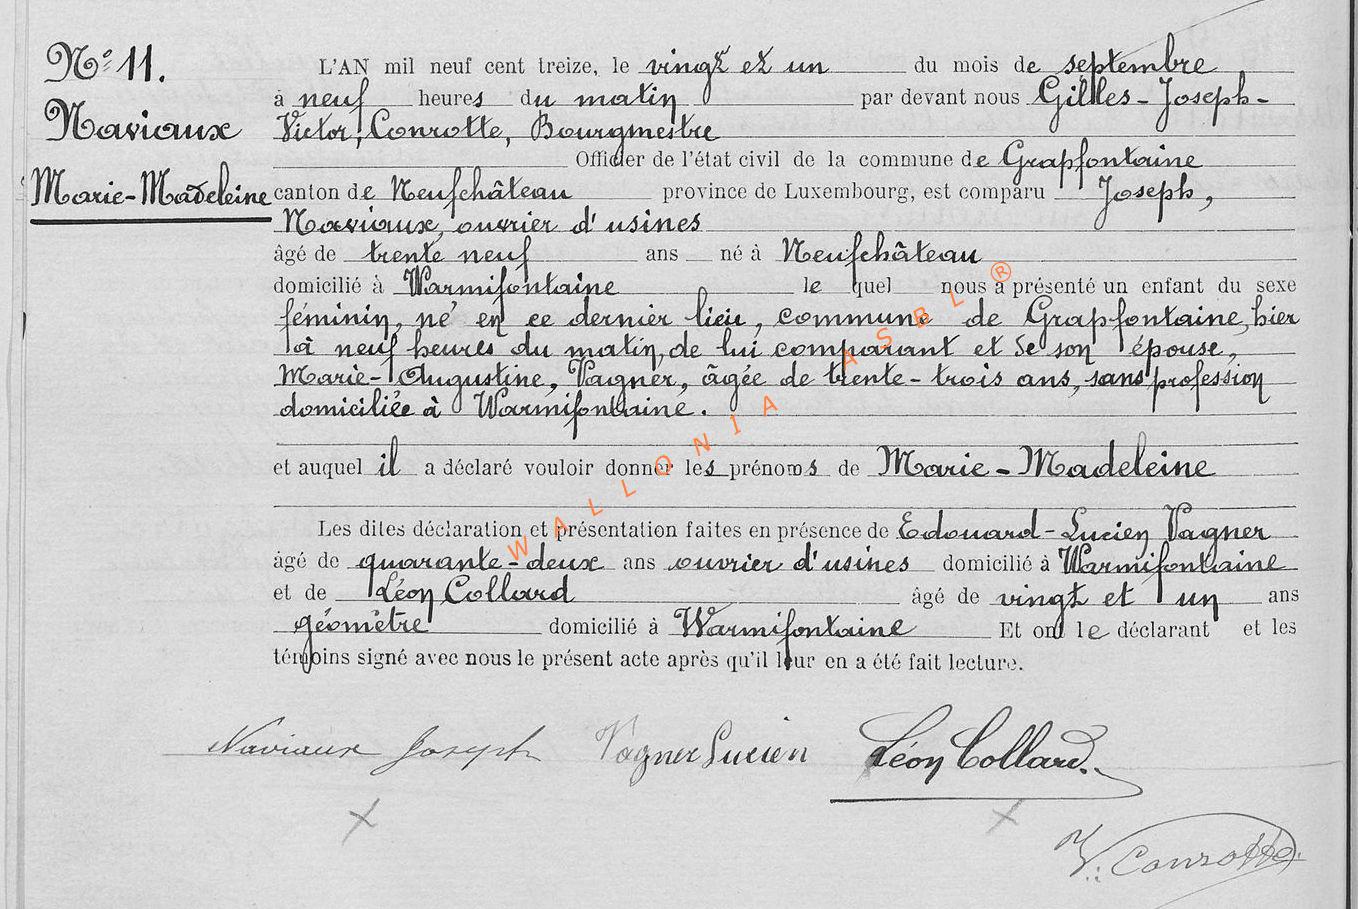 N° 11.
Naviaux
Marie-Madeleine
L'AN mil neuf cent treize, le vingt et un du mois de septembre
à neuf heures du matin par devant nous Gilles-Joseph-
Victor, Conrotte, Bourgmestre
Officier de l'état civil de la commune de Grapfontaine
canton de Neufchâteau province de Luxembourg, est comparu Joseph,
Naviaux, ouvrier d'usines
âgé de trente neuf ans né à Neufchâteau
domicilié à Warmifontaine le quel nous a présenté un enfant du sexe
féminin, né en ce dernier lieu, commune de Grapfontaine, hier
à neuf heures du matin, de lui comparant et de son épouse,
Marie-Augustine, Vagner, âgée de trente-trois ans, sans profession
domiciliée à Warmifontaine.
et auquel il a déclaré vouloir donner les prénoms de Marie-Madeleine
Les dites déclaration et présentation faites en présence de Edouard-Lucien Vagner
âgé de quarante-deux ans ouvrier d'usines domicilié à Warmifontaine
et de Léon Collard âgé de vingt et un ans
géomètre domicilié à Warmifontaine Et ont le déclarant et les
témoins signé avec nous le présent acte après qu'il leur en a été fait lecture.
Naviaux Joseph Vagner Lucien Léon Collard.
V. Conrotte
WALLONIA ASBL ®